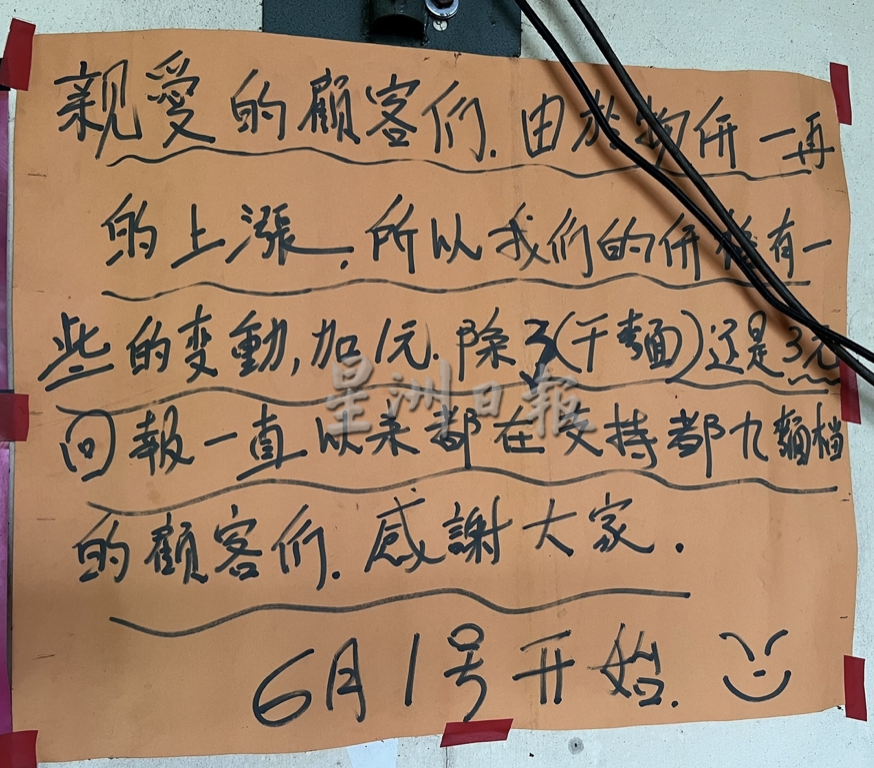 親愛的顧客们.由於物併一再
的上漲.所以我们的併格有一
些的变動,加1元.除了(干麵)还是3元
回報一直以来都在支持都九麵档
的顧客们.感謝大家.
6月1号开始.
星洲日報